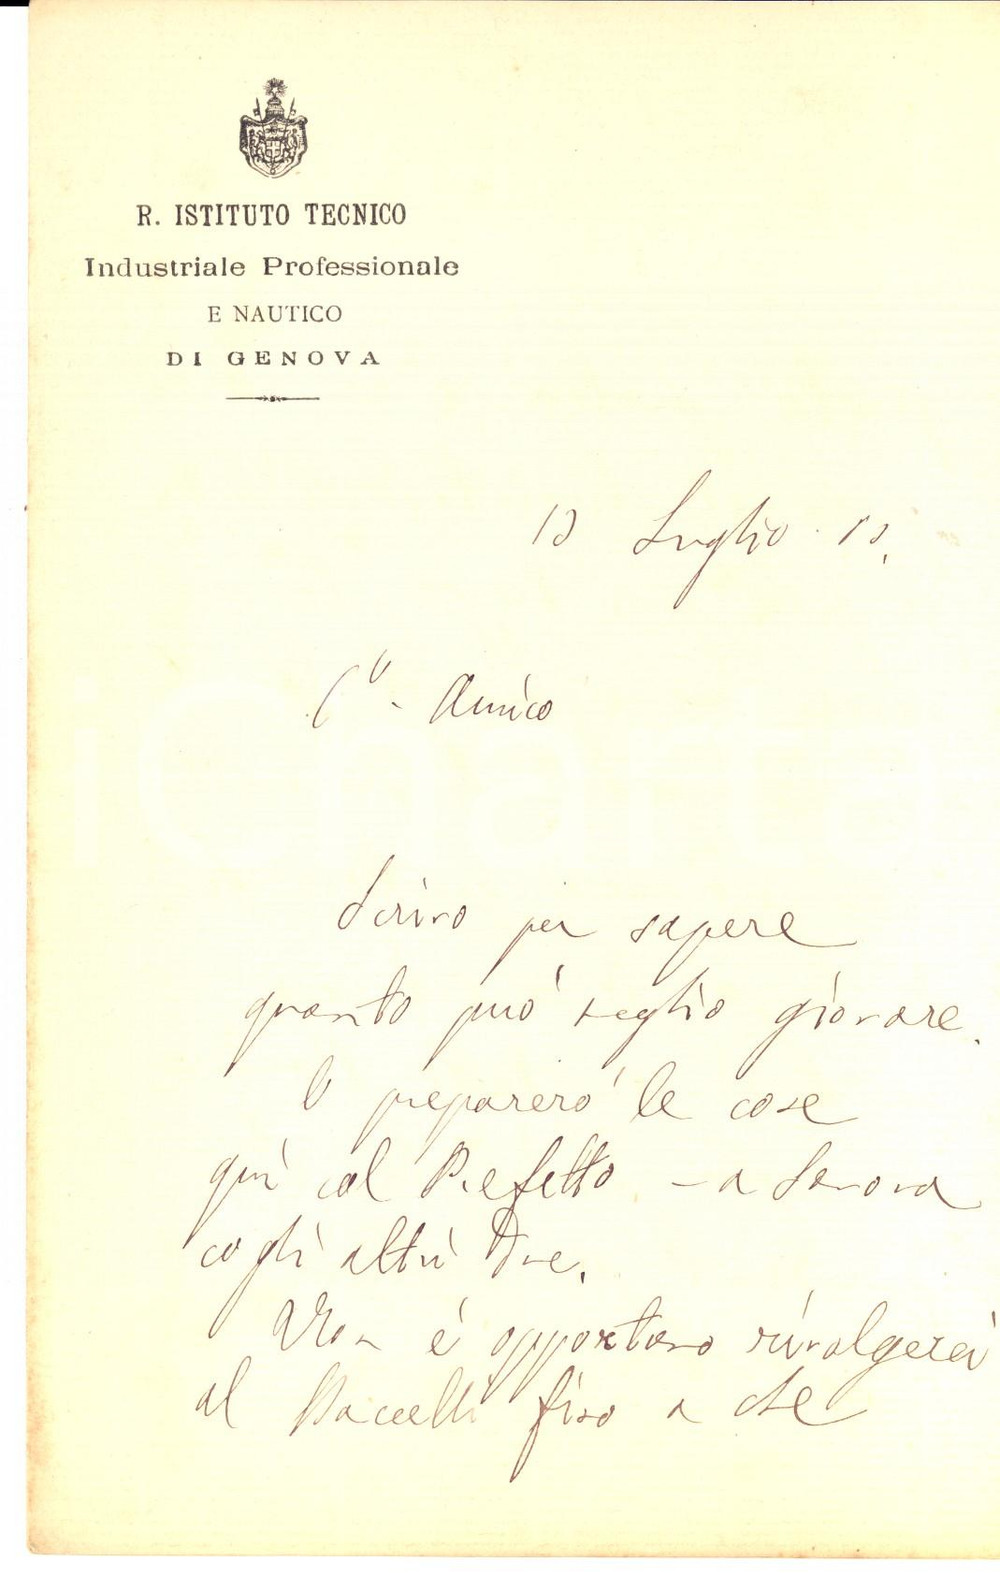 R. ISTITUTO TECNICO
Industriale Professionale
E NAUTICO
DI GENOVA
13 Luglio
C.º Amico
Scrivo per sapere
quanto può meglio giovare.
Io preparerò le cose
quì col Prefetto – a Savona
cogli altri due.
Non è opportuno rivolgerci
al Baccelli fino a che
iCharta